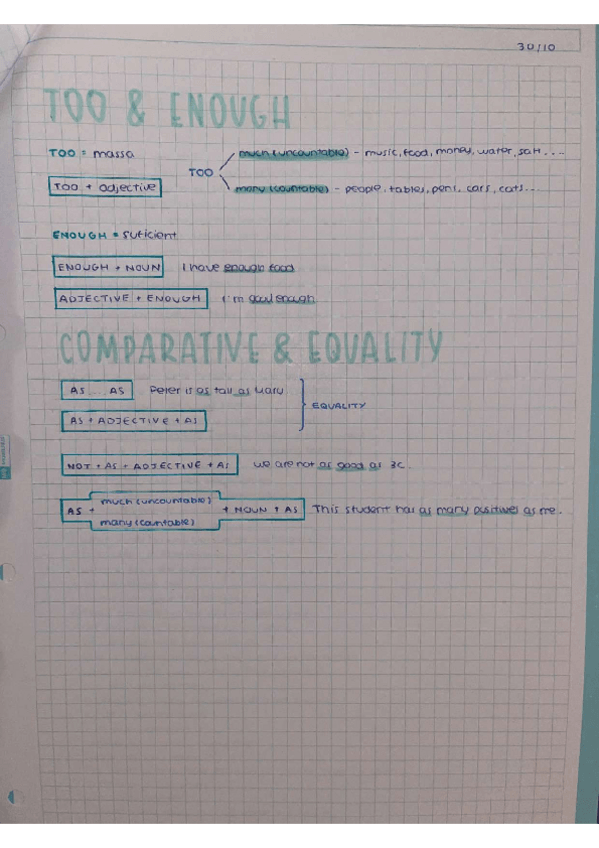 30/10
TOO & ENOUGH
TOO = massa
TOO + adjective
TOO
much (uncountable) - music, food, money, water, salt....
many (countable) - people, tables, pens, cars, cats...
ENOUGH = suficient
ENOUGH + NOUN I have enough food
ADJECTIVE + ENOUGH I'm good enough
COMPARATIVE & EQUALITY
AS ... AS Peter is as tall as Mary
AS + ADJECTIVE + AS
EQUALITY
NOT + AS + ADJECTIVE + AS we are not as good as 3C.
AS + much (uncountable) many (countable) + NOUN + AS This student has as many positives as me.